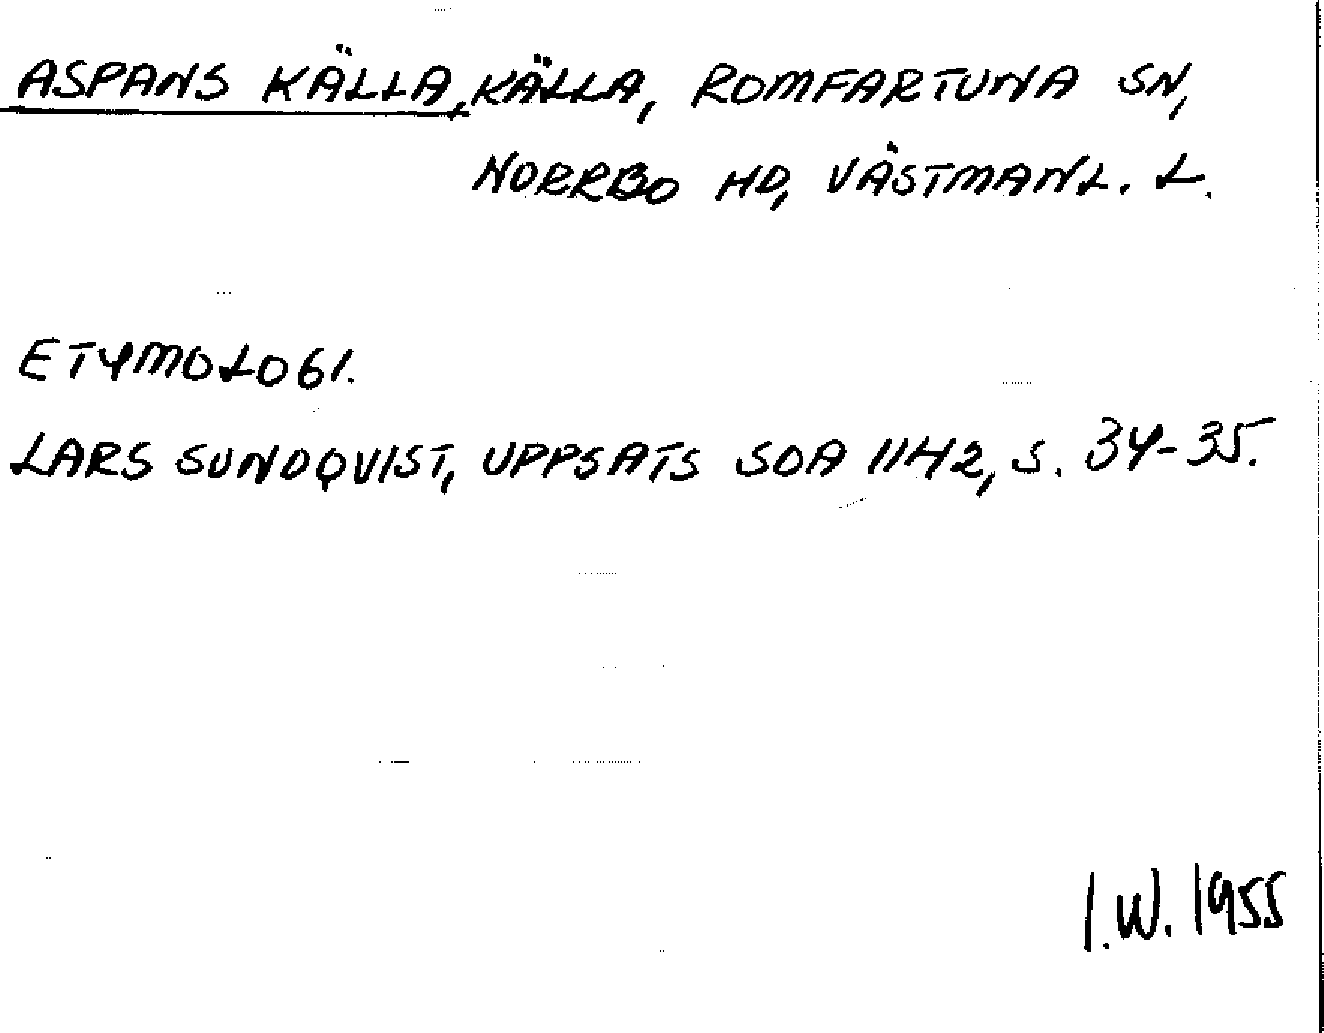 ASPANS KÄLLA, KÄLLA, ROMFARTUNA SN,
NORRBO HD, VÄSTMANL. L.
ETYMOLOGI.
LARS SUNDQVIST, UPPSATS SOA 1142, S. 34-35.
I.W. 1955